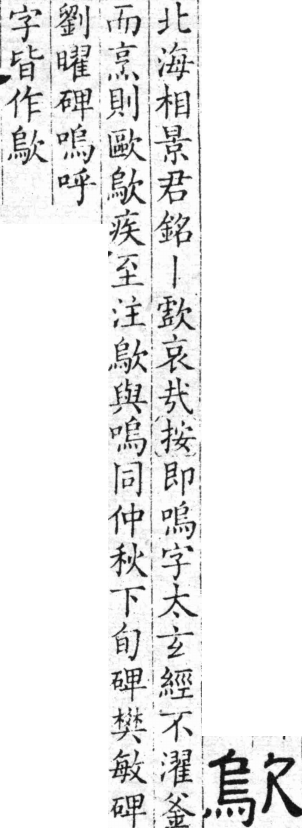 歍
北海相景君銘丨歔哀㢤按即嗚字太玄經不濯釜
而烹則歐歍疾至注歍與嗚同仲秋下旬碑樊敏碑
劉曜碑嗚呼
字皆作歍